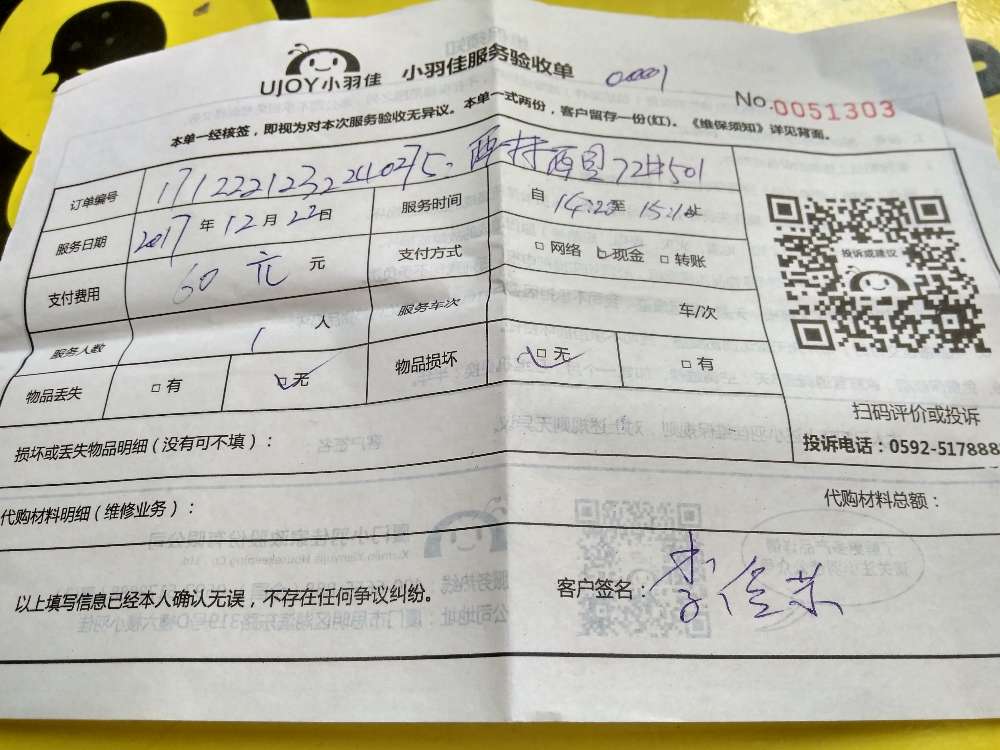 UJOY小羽佳 小羽佳服务验收单 00001
No.0051303
本单一经核签，即视为对本次服务验收无异议。本单一式两份，客户留存一份(红)。《维保须知》详见背面。
订单编号 17122212322410275. 西村西里72#501
服务日期 2017年12月22日 服务时间 自14:20至15:10止
支付费用 60元 元 支付方式 □网络 □现金 □转账
服务人数 1人 服务车次 车/次
物品丢失 □有 □无 物品损坏 □无 □有
投诉或建议
扫码评价或投诉
投诉电话：0592-517888
损坏或丢失物品明细（没有可不填）：
代购材料明细（维修业务）： 代购材料总额：
以上填写信息已经本人确认无误，不存在任何争议纠纷。 客户签名：李